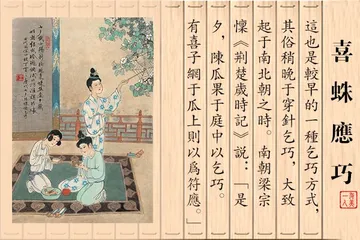 喜蛛應巧
這也是較早的一種乞巧方式，
其俗稍晚于穿針乞巧，大致
起于南北朝之時。南朝梁宗
懍《荆楚歲時記》說：「是
夕，陳瓜果于庭中以乞巧。
有喜子網于瓜上則以爲符應。」